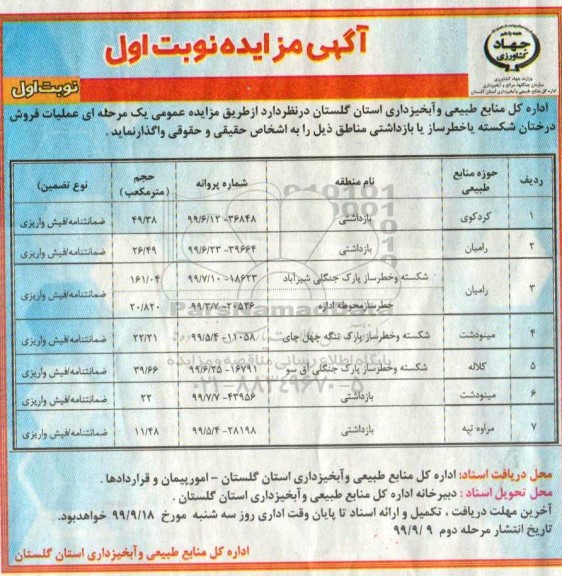 آگهی مزایده نوبت اول
همه با هم
جهاد
کشاورزی
وزارت جهاد کشاورزی
سازمان جنگلها، مراتع و آبخیزداری
اداره کل منابع طبیعی و آبخیزداری استان گلستان
نوبت اول
اداره کل منابع طبیعی وآبخیزداری استان گلستان درنظردارد ازطریق مزایده عمومی یک مرحله ای عملیات فروش
درختان شکسته یاخطرساز یا بازداشتی مناطق ذیل را به اشخاص حقیقی و حقوقی واگذارنماید .
ردیف | حوزه منابع طبیعی | نام منطقه | شماره پروانه | حجم (مترمکعب) | نوع تضمین)
۱ | کردکوی | بازداشتی | ۳۶۸۴۸- ۹۹/۶/۱۲ | ۴۹/۳۸ | ضمانتنامه/فیش واریزی
۲ | رامیان | بازداشتی | ۳۹۶۶۴- ۹۹/۶/۲۳ | ۲۶/۴۹ | ضمانتنامه/فیش واریزی
۳ | رامیان | شکسته وخطرساز پارک جنگلی شیرآباد | ۱۸۶۲۳- ۹۹/۷/۱۰ | ۱۶۱/۰۴ | ضمانتنامه/فیش واریزی
خطرسازمحوطه اداره | ۲۰۵۲۶- ۹۹/۳/۷ | ۲۰/۸۲۰
۴ | مینودشت | شکسته وخطرساز پارک تنگه چهل چای | ۱۱۰۵۸- ۹۹/۵/۴ | ۲۲/۲۱ | ضمانتنامه/فیش واریزی
۵ | کلاله | شکسته وخطرساز پارک جنگلی آق سو | ۱۶۷۹۱- ۹۹/۶/۲۵ | ۳۹/۶۶ | ضمانتنامه/فیش واریزی
۶ | مینودشت | بازداشتی | ۴۳۹۵۶- ۹۹/۷/۷ | ۲۲ | ضمانتنامه/فیش واریزی
۷ | مراوه تپه | بازداشتی | ۲۸۱۹۸- ۹۹/۵/۴ | ۱۱/۴۸ | ضمانتنامه/فیش واریزی
پایگاه اطلاع رسانی مناقصه و مزایده
۰۲۱-۸۸۳۴۹۶۷۰-۵
محل دریافت اسناد: اداره کل منابع طبیعی وآبخیزداری استان گلستان – امورپیمان و قراردادها .
محل تحویل اسناد : دبیرخانه اداره کل منابع طبیعی وآبخیزداری استان گلستان .
آخرین مهلت دریافت ، تکمیل و ارائه اسناد تا پایان وقت اداری روز سه شنبه مورخ ۹۹/۹/۱۸ خواهدبود.
تاریخ انتشار مرحله دوم ۹۹/۹/۹
اداره کل منابع طبیعی و آبخیزداری استان گلستان